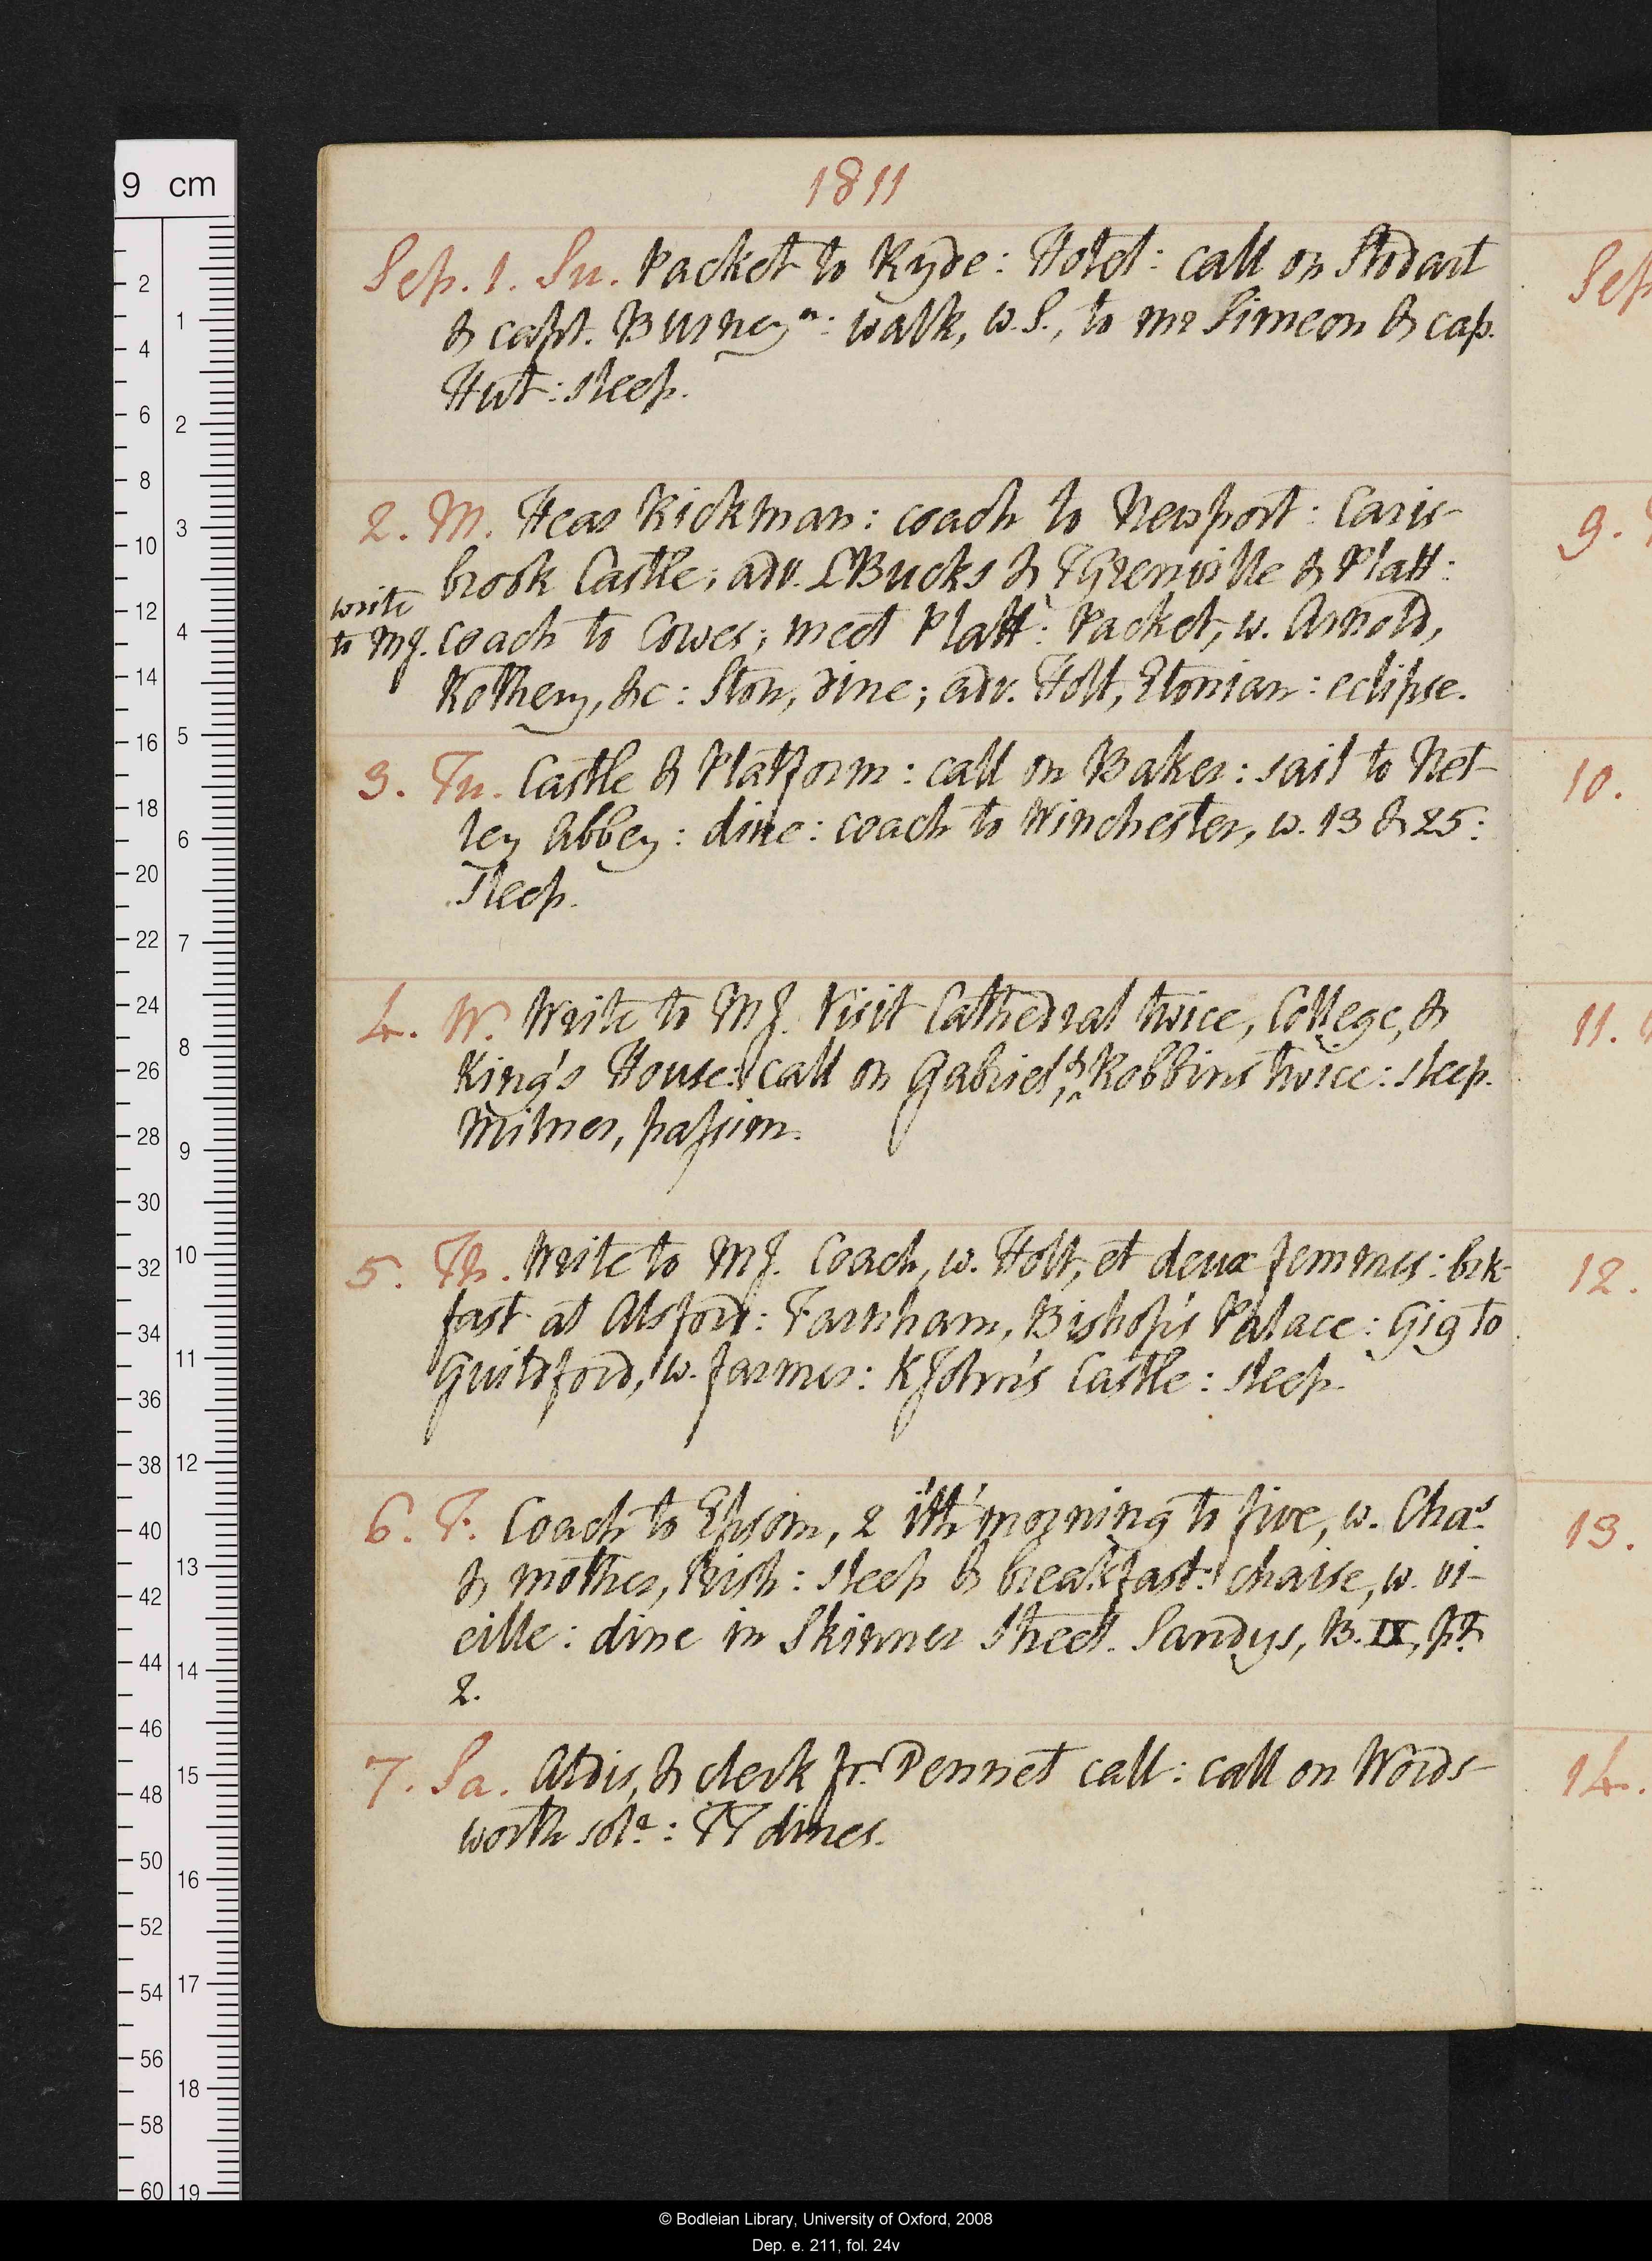 1811
Sep. 1. Su. Packet to Ryde: Hotel: call on Stodart
& capt. Burney n: walk, w. S., to mr Simeon & cap.
Hut: sleep.
2. M. Hear Rickman: coach to Newport: Caris-
brook Castle; adv. LBucks & TGrenville & Platt:
write
to MJ. coach to Cowes; meet Platt: Packet, w. Arnold,
Rothery, &c: Ston, dine; adv. Holt, Etonian: eclipse.
3. Tu. Castle & Platform: call on Baker: sail to Net-
ley Abbey: dine: coach to Winchester, w. 13 & 25:
sleep.
4. W. Write to MJ. Visit Cathedral twice, College, &
King's House: call on Gabriel, & Robbins twice: sleep.
Milner, passim.
5. Th. Write to MJ. Coach, w. Holt, et deux femmes: brk-
fast at Alsford: Farnham, Bishop's Palace: Gig to
Guildford, w. farmer: KJohn's Castle: sleep.
6. F. Coach to Epsom, 2 i'th' morning to five, w. Chas
& mother, Irish: sleep & breakfast: chaise, w. vi-
eille: dine in Skinner Street. Sandys, B. IX, pt
2.
7. Sa. Aldis, & clerk fr. Dennet call: call on Words-
worth sola: TT dines.
Sep
9.
10.
11.
12.
13.
14.
9 cm
2
4
6
8
10
12
14
16
18
20
22
24
26
28
30
32
34
36
38
40
42
44
46
48
50
52
54
56
58
60
1
2
3
4
5
6
7
8
9
10
11
12
13
14
15
16
17
18
19
© Bodleian Library, University of Oxford, 2008
Dep. e. 211, fol. 24v